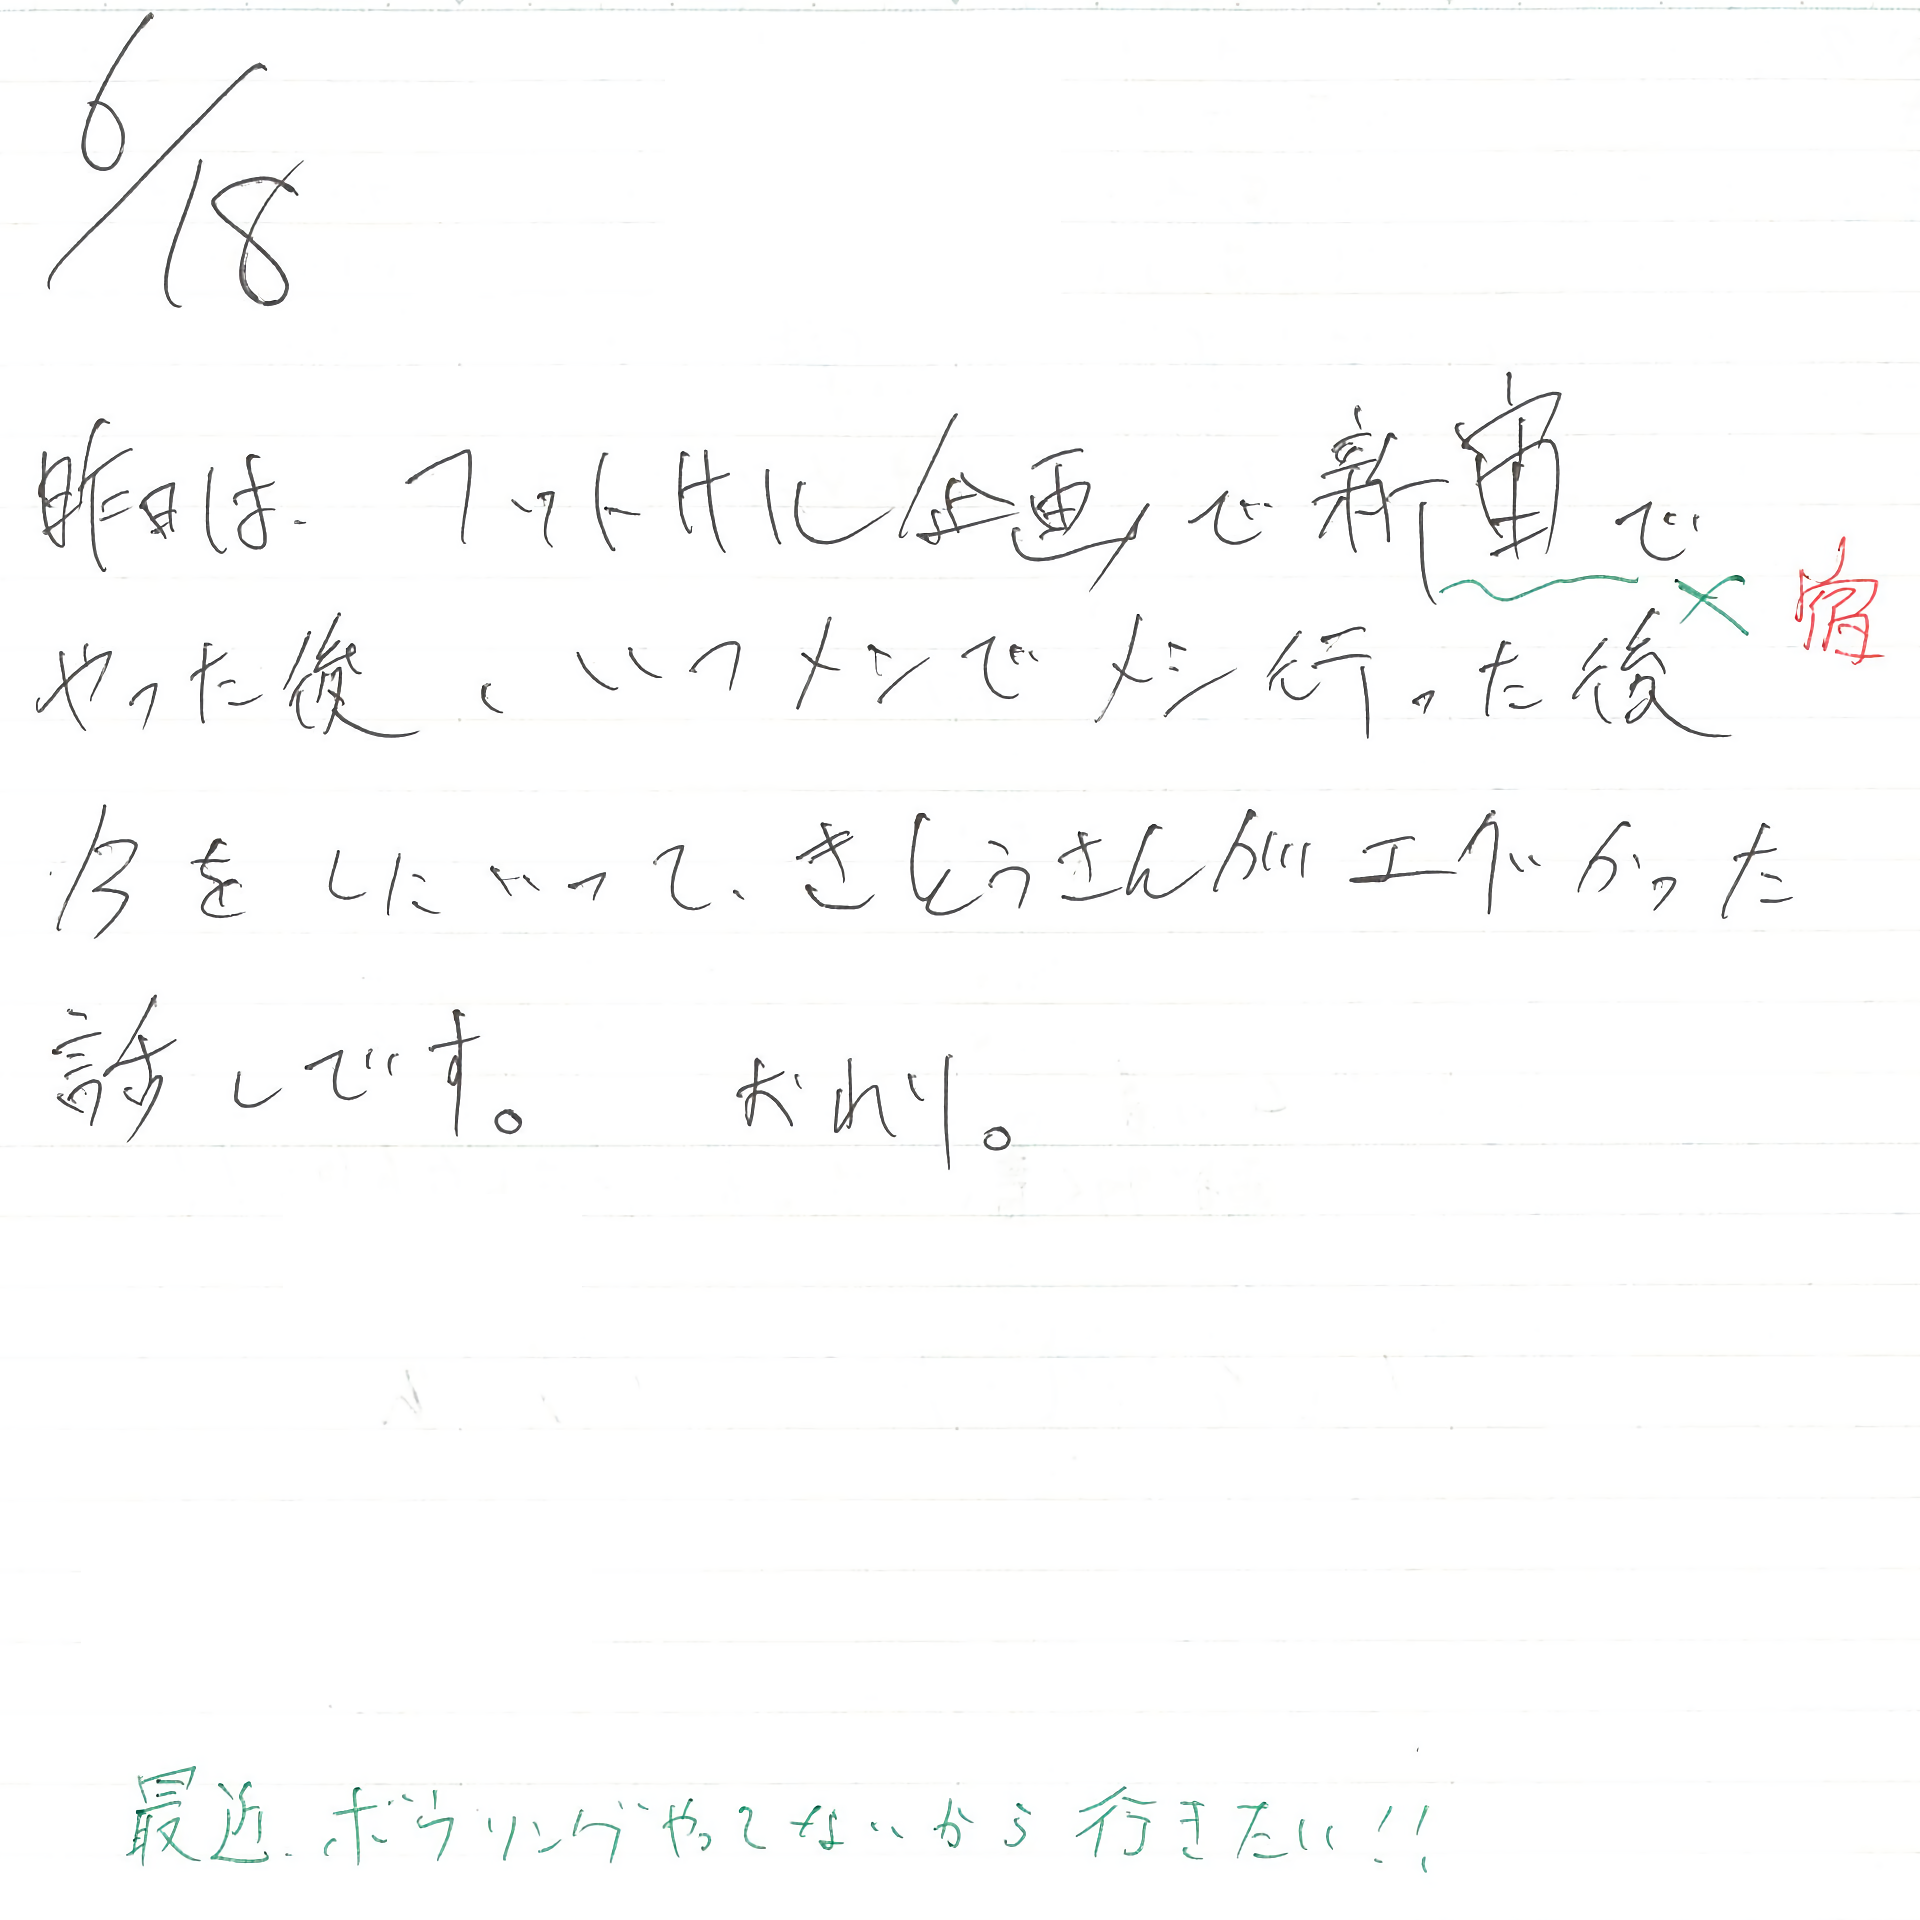 6/18
昨日は、フットサル企画で新宙で
× 宿
やった後、いつメンでメシ行った後
をしにいって、きとうさんがエグかった
話しです。 おわり。
最近、ボウリングやってないから行きたい!!